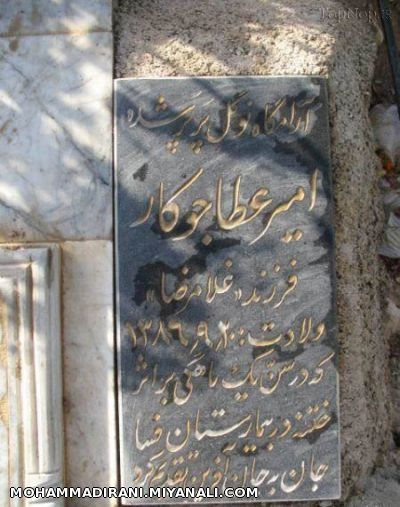 TopNop.ir
آرامگاه نوگل پَرپَر شده
امیر عطا جوکار
فرزند «غلامرضا»
ولادت: ۱۳۸۶,۹,۲۰
که در سن یک ماهگی بر اثر
ختنه در بیمارستان فسا
جان به جان آفرین تقدیم کرد
MOHAMMADIRANI.MIYANALI.COM